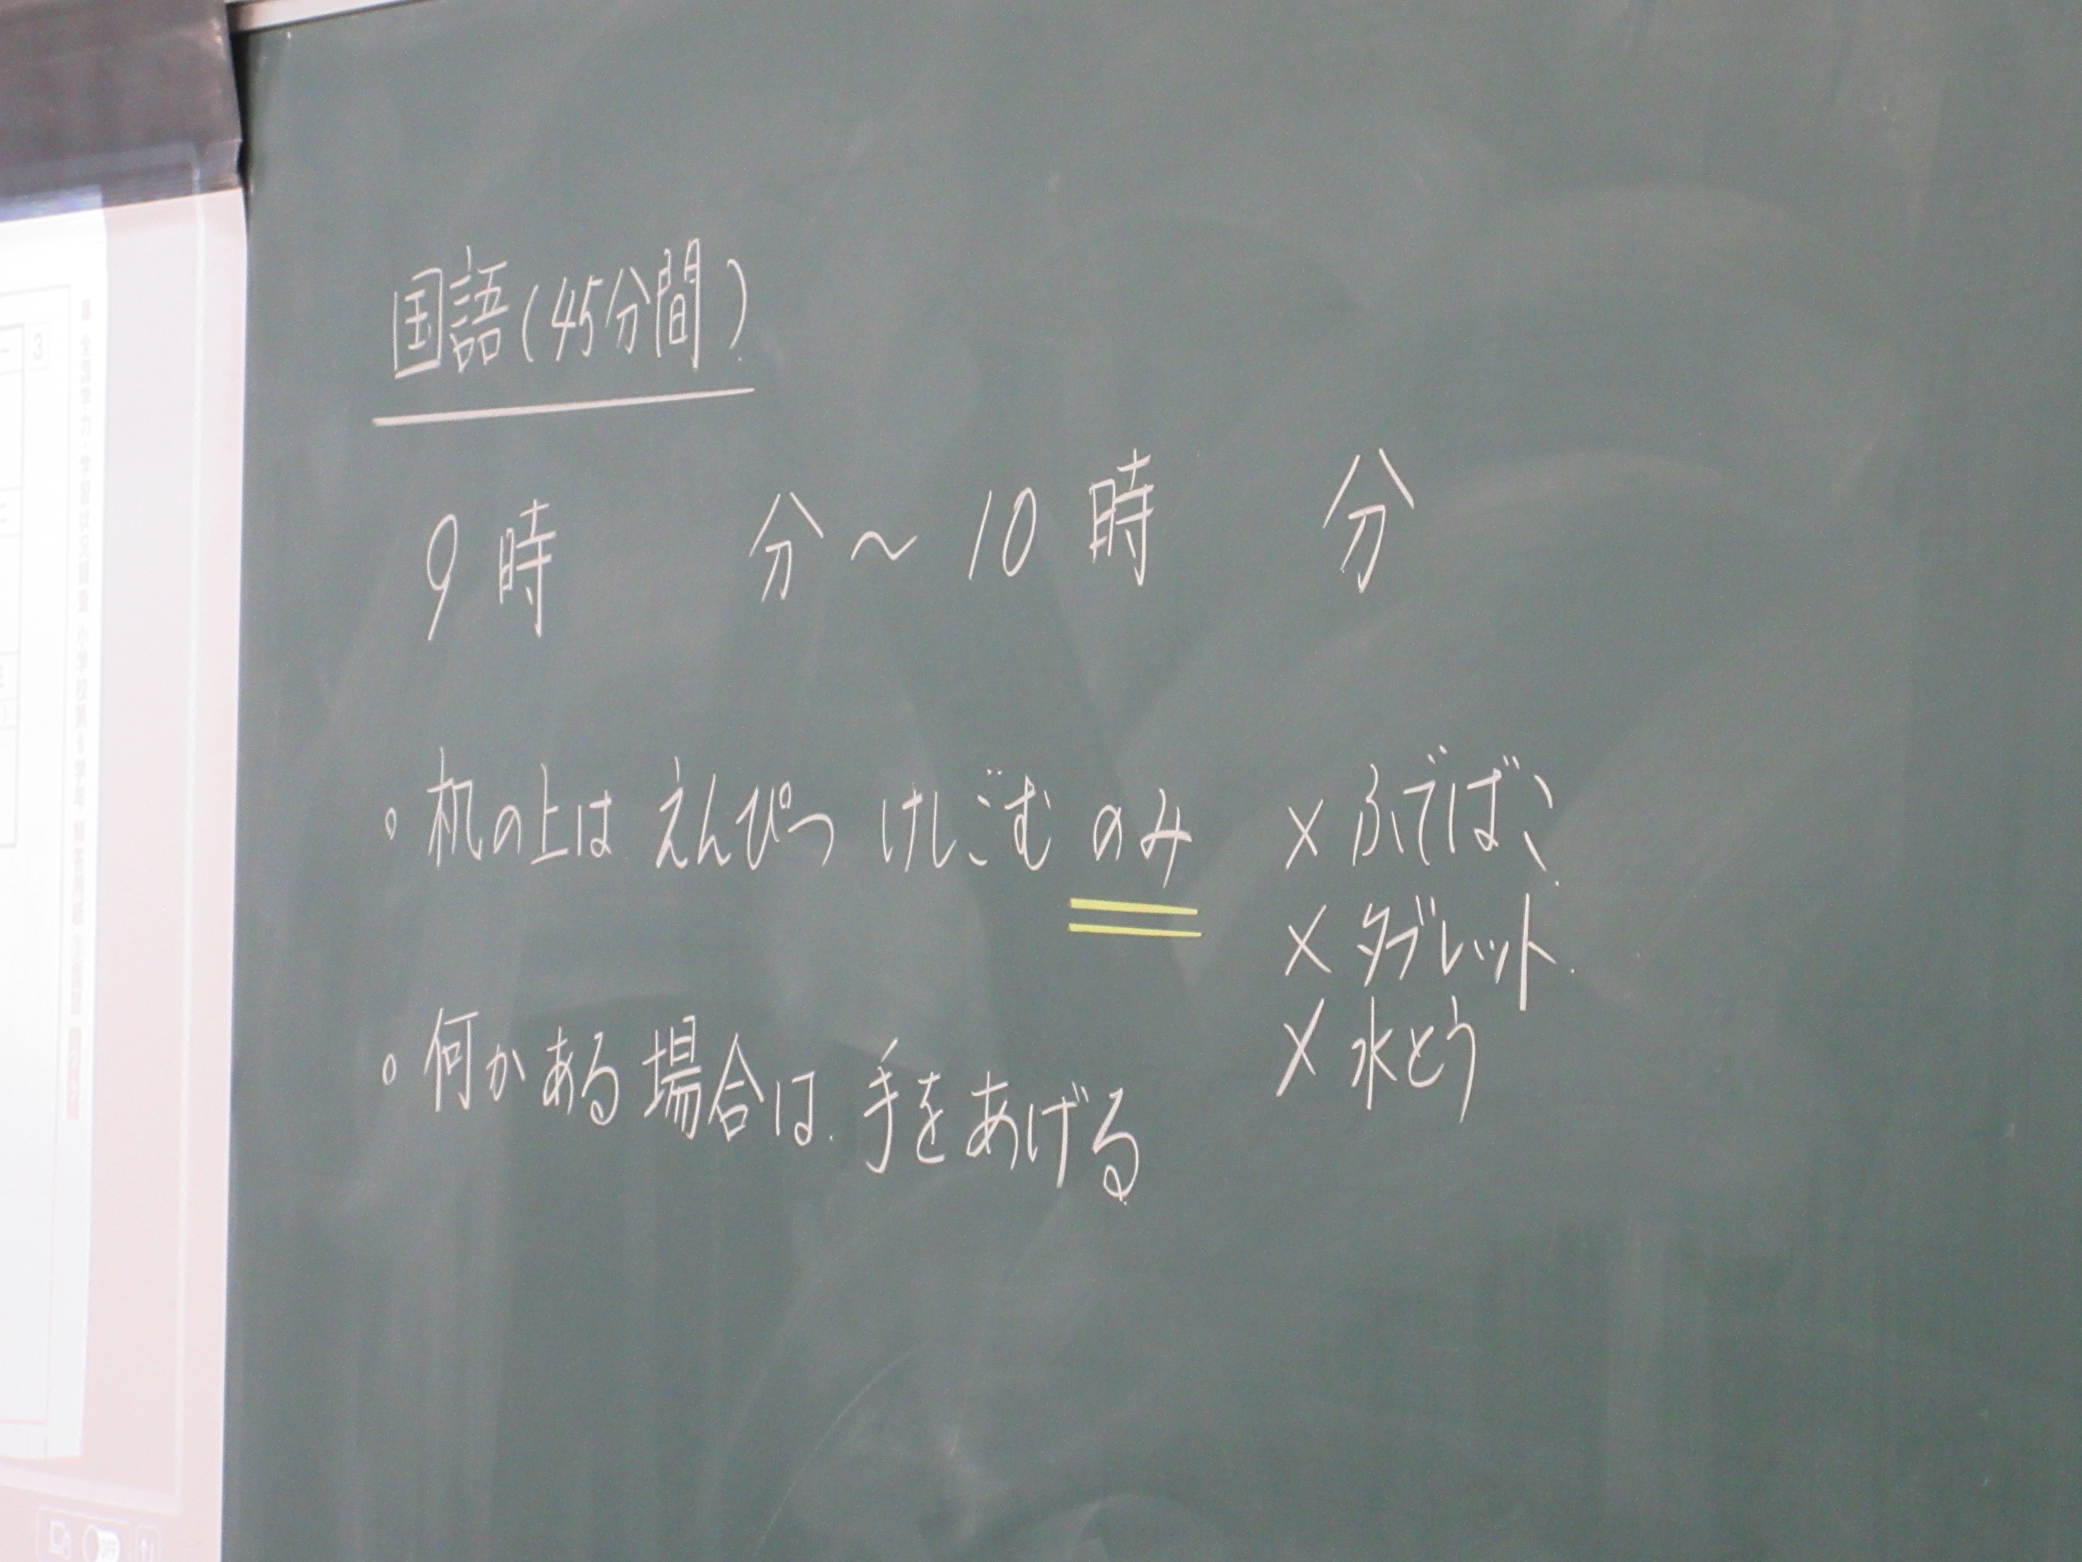 国語(45分間)
9時　　分～10時　　分
・机の上は えんぴつ けしごむ のみ
×ふでばこ
×タブレット
×水とう
・何かある場合は 手をあげる
3